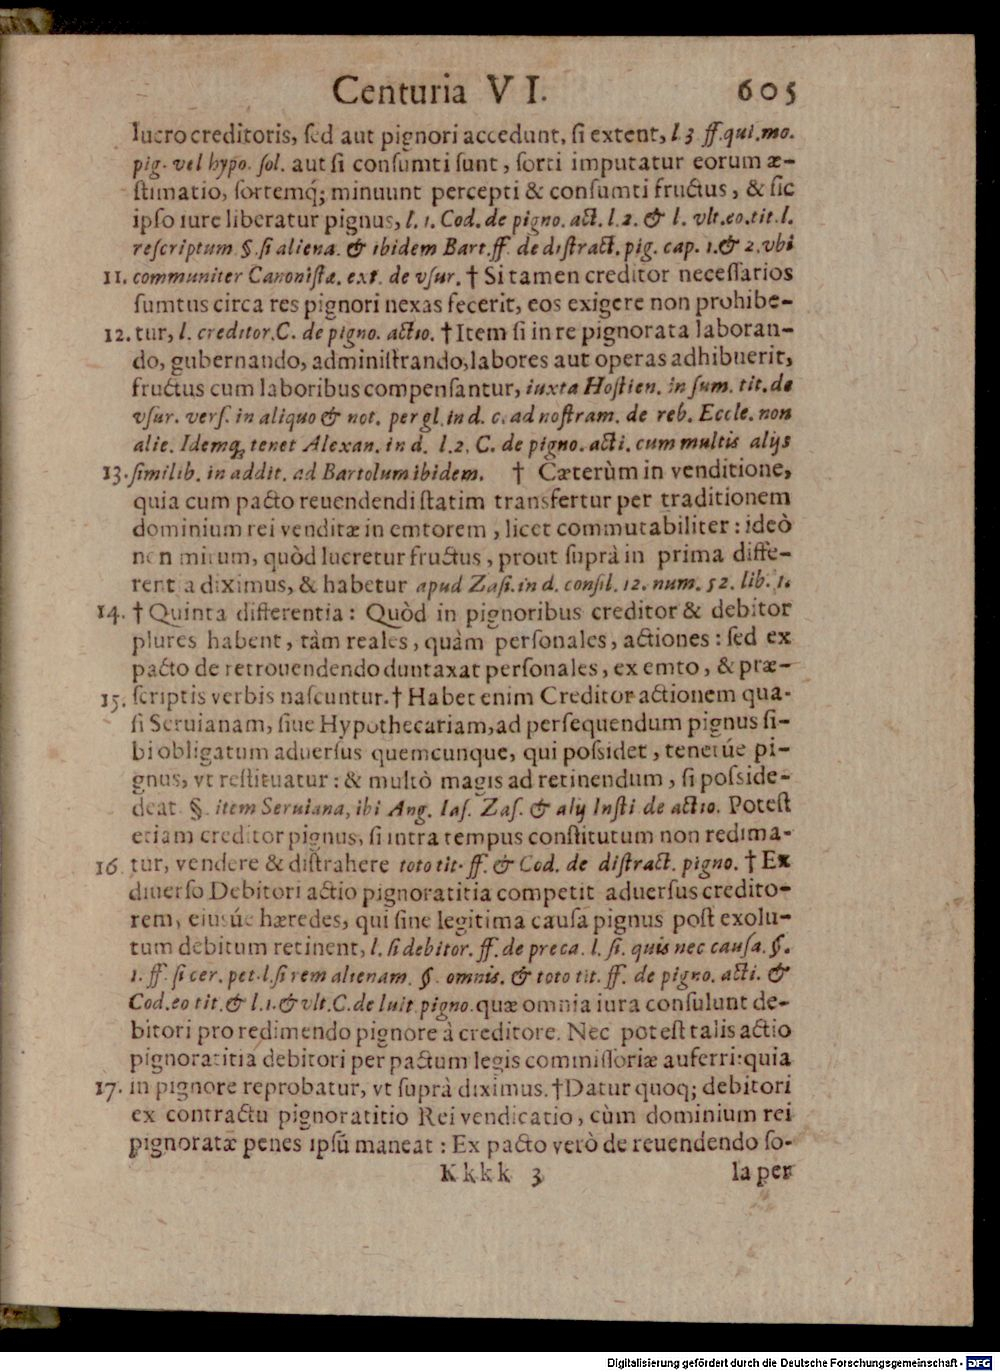 Centuria VI. 605
lucro creditoris, sed aut pignori accedunt, si extent, l 3 ff. qui. mo.
pig. vel hypo. sol. aut si consumti sunt, sorti imputatur eorum æ-
stimatio, sortemq́; minuunt percepti & consumti fructus, & sic
ipso iure liberatur pignus, l. 1. Cod. de pigno. act. l. 2. & l. vlt. eo. tit. l.
rescriptum §. si aliena. & ibidem Bart. ff. de distract. pig. cap. 1. & 2. vbi
11. communiter Canonistæ. ext. de vsur. † Si tamen creditor necessarios
sumtus circa res pignori nexas fecerit, eos exigere non prohibe-
12. tur, l. creditor. C. de pigno. actio. † Item si in re pignorata laboran-
do, gubernando, administrando, labores aut operas adhibuerit,
fructus cum laboribus compensantur, iuxta Hostien. in sum. tit. de
vsur. vers. in aliquo & not. per gl. in d. c. ad nostram. de reb. Eccle. non
alie. Idemq; tenet Alexan. in d. l. 2. C. de pigno. acti. cum multis alijs
13. similib. in addit. ad Bartolum ibidem. † Cæterùm in venditione,
quia cum pacto reuendendi statim transfertur per traditionem
dominium rei venditæ in emtorem, licet commutabiliter: ideò
non mirum, quòd lucretur fructus, prout suprà in prima diffe-
rentia diximus, & habetur apud Zasi. in d. consil. 12. num. 52. lib. 1.
14. † Quinta differentia: Quòd in pignoribus creditor & debitor
plures habent, tàm reales, quàm personales, actiones: sed ex
pacto de retrouendendo duntaxat personales, ex emto, & præ-
15. scriptis verbis nascuntur. † Habet enim Creditor actionem qua-
si Seruianam, siue Hypothecariam, ad persequendum pignus si-
bi obligatum aduersus quemcunque, qui possidet, teneturúe pi-
gnus, vt restituatur: & multò magis ad retinendum, si posside-
deat §. item Seruiana, ibi Ang. Ias. Zas. & alij Insti de actio. Potest
etiam creditor pignus, si intra tempus constitutum non redima-
16. tur, vendere & distrahere toto tit. ff. & Cod. de distract. pigno. † Ex
diuerso Debitori actio pignoratitia competit aduersus credito-
rem, eiusúe hæredes, qui sine legitima causa pignus post exolu-
tum debitum retinent, l. si debitor. ff. de preca. l. si. quis nec causa. §.
1. ff. si cer. pet. l. si rem alienam. §. omnis. & toto tit. ff. de pigno. acti. &
Cod. eo tit. & l. 1. & vlt. C. de luit pigno. quæ omnia iura consulunt de-
bitori pro redimendo pignore à creditore. Nec potest talis actio
pignoratitia debitori per pactum legis commissoriæ auferri: quia
17. in pignore reprobatur, vt suprà diximus. † Datur quoq; debitori
ex contractu pignoratitio Rei vendicatio, cùm dominium rei
pignoratæ penes ipsũ maneat: Ex pacto verò de reuendendo so-
Kkkk 3 la per
Digitalisierung gefördert durch die Deutsche Forschungsgemeinschaft - DFG